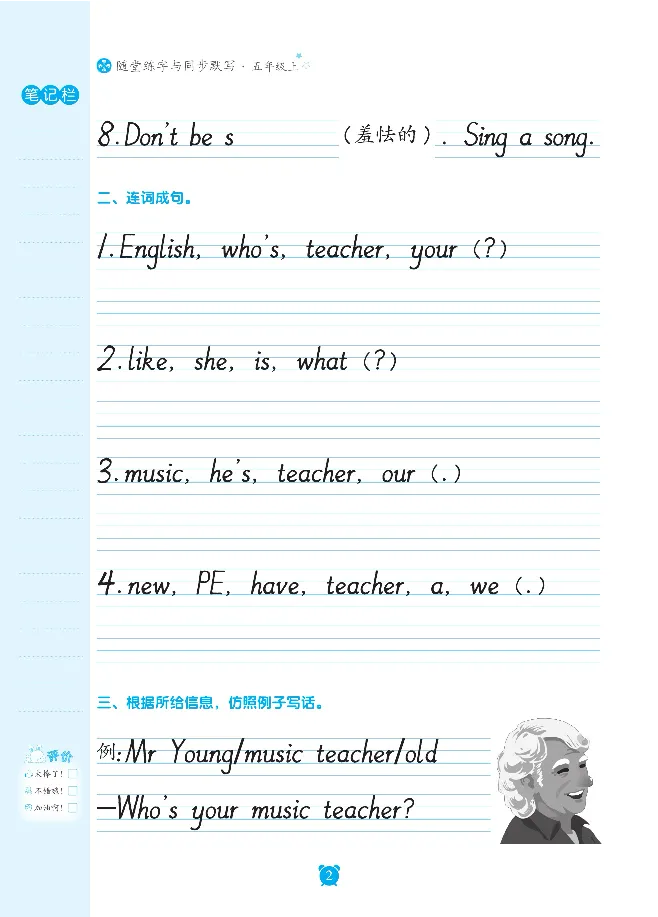 随堂练字与同步默写·五年级上
笔记栏
8.Don't be s （羞怯的）. Sing a song.
二、连词成句。
1.English, who's, teacher, your (?)
2.like, she, is, what (?)
3.music, he's, teacher, our (.)
4.new, PE, have, teacher, a, we (.)
三、根据所给信息，仿照例子写话。
例:Mr Young/music teacher/old
—Who's your music teacher?
评价
太棒了!
不错哦!
加油啊!
2